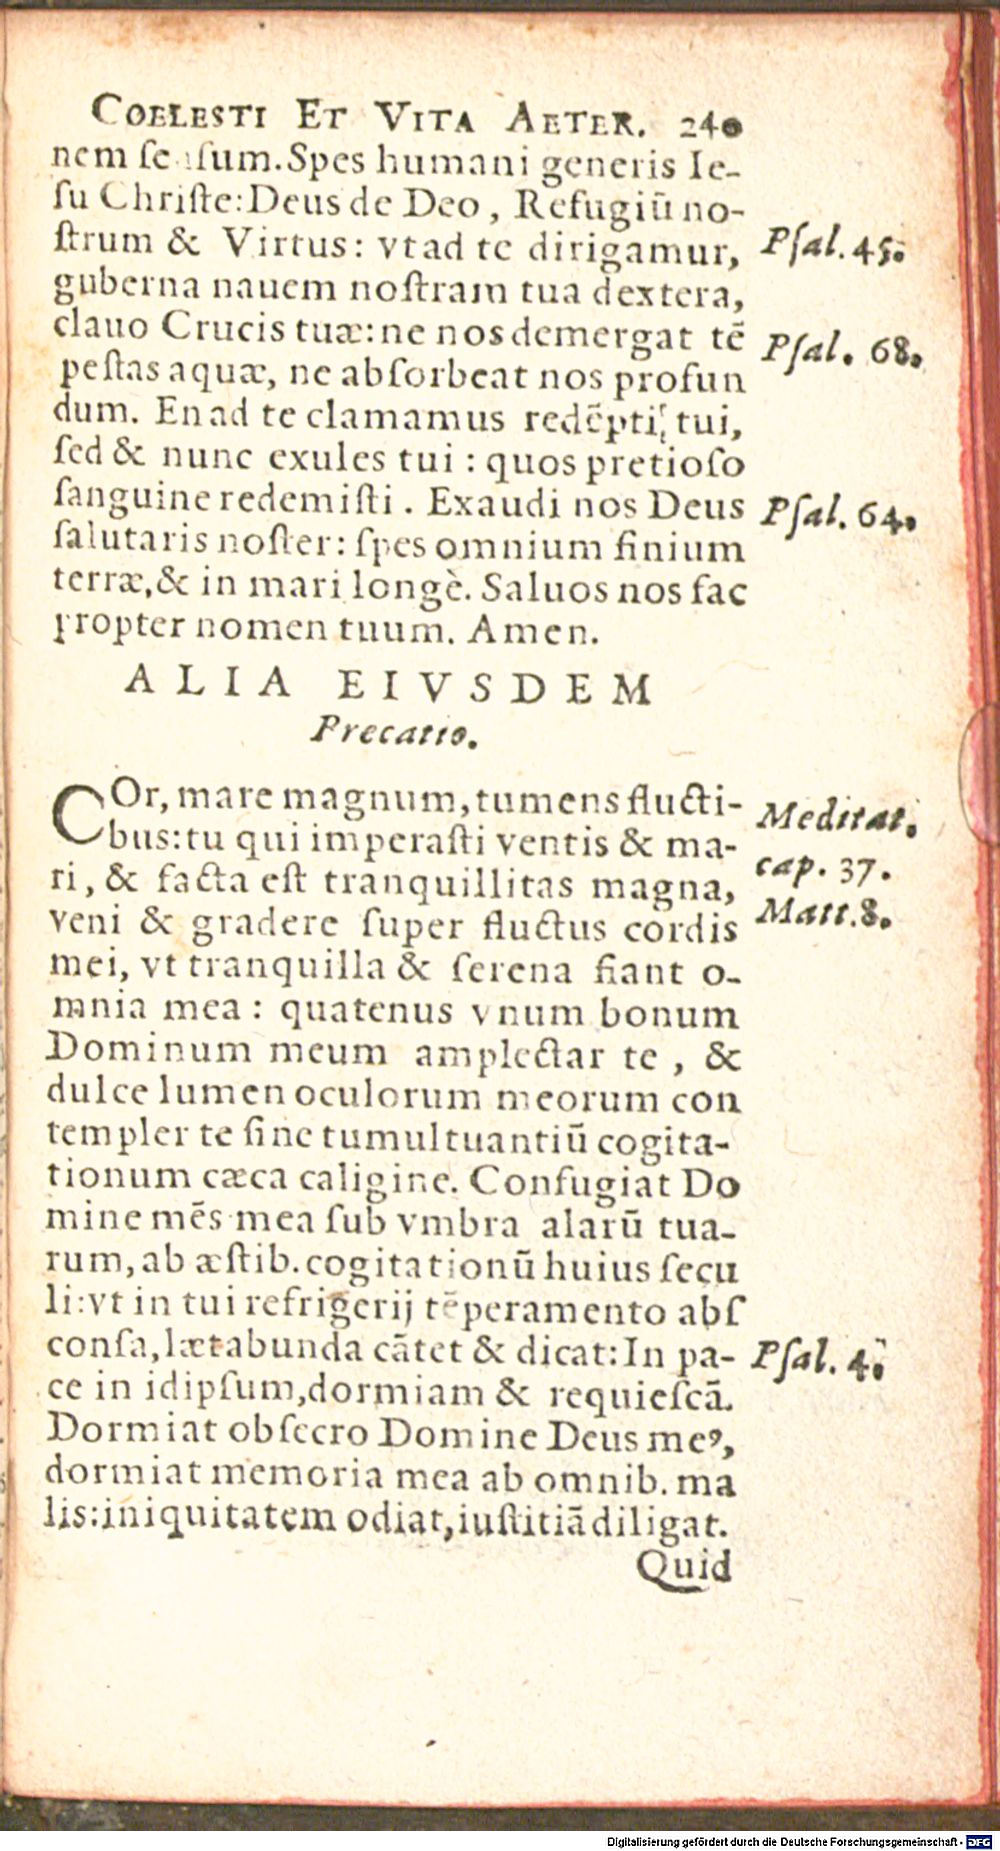 COELESTI ET VITA AETER. 240
nem sensum. Spes humani generis Ie-
ſu Chriſte: Deus de Deo, Refugiū no-
ſtrum & Virtus: vt ad te dirigamur,
Pſal. 45.
guberna nauem noſtram tua dextera,
clauo Crucis tuæ: ne nos demergat tē
Pſal. 68.
peſtas aquæ, ne abſorbeat nos profun
dum. En ad te clamamus redēpti tui,
ſed & nunc exules tui: quos pretioſo
ſanguine redemiſti. Exaudi nos Deus
Pſal. 64.
ſalutaris noſter: ſpes omnium finium
terræ, & in mari longè. Saluos nos fac
propter nomen tuum. Amen.
ALIA EIVSDEM
Precatio.
COr, mare magnum, tumens flucti-
Meditat.
bus: tu qui imperaſti ventis & ma-
cap. 37.
ri, & facta eſt tranquillitas magna,
Matt. 8.
veni & gradere ſuper fluctus cordis
mei, vt tranquilla & ſerena fiant o-
mnia mea: quatenus vnum bonum
Dominum meum amplectar te, &
dulce lumen oculorum meorum con
templer te ſine tumultuantiū cogita-
tionum cæca caligine. Confugiat Do
mine mēs mea ſub vmbra alarū tua-
rum, ab æſtib. cogitationū huius ſecu
li: vt in tui refrigerij tēperamento abſ
conſa, lætabunda cātet & dicat: In pa-
Pſal. 4.
ce in idipſum, dormiam & requieſcā.
Dormiat obſecro Domine Deus meꝰ,
dormiat memoria mea ab omnib. ma
lis: iniquitatem odiat, iuſtitiā diligat.
Quid
Digitalisierung gefördert durch die Deutsche Forschungsgemeinschaft - DFG